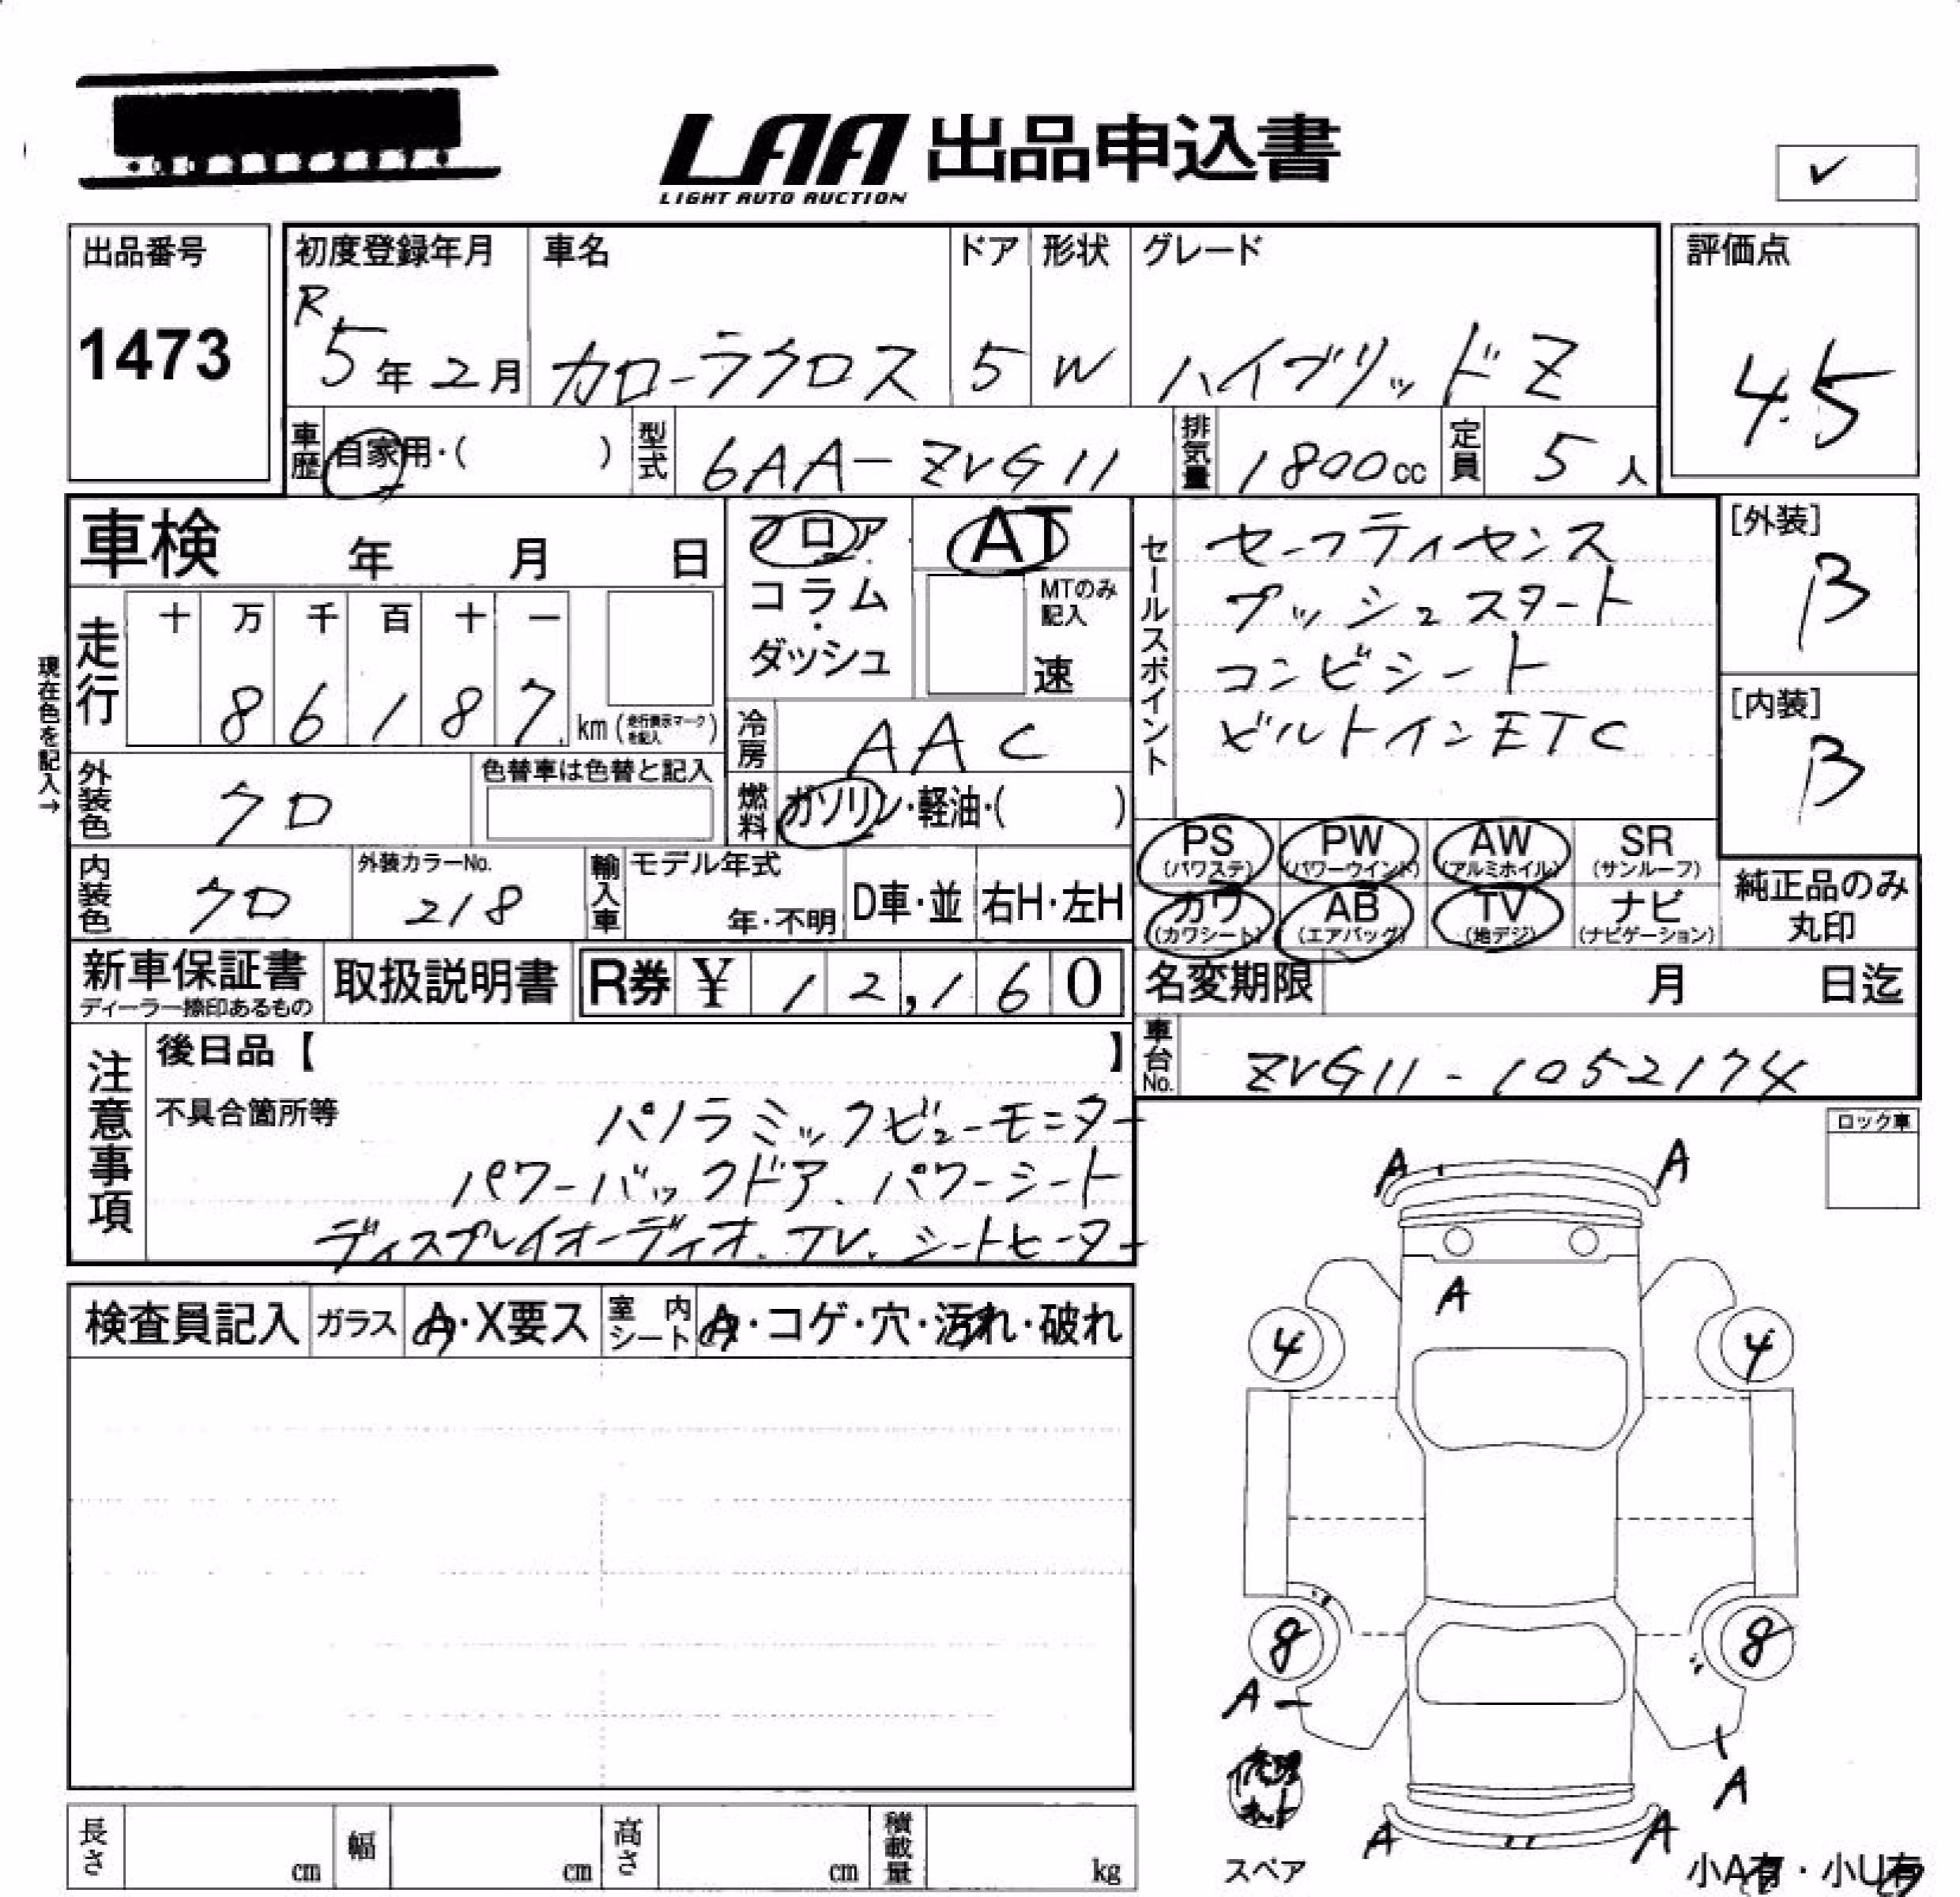 LAA 出品申込書
LIGHT AUTO AUCTION
✓
出品番号
1473
初度登録年月
R5年2月
車名
カローラクロス
ドア
5
形状
W
グレード
ハイブリッドZ
評価点
4.5
車歴 自家用・( )
型式 6AA-ZVG11
排気量 1800cc
定員 5人
車検 年 月 日
フロア・
コラム・
ダッシュ
AT
MTのみ記入
速
セールスポイント
セーフティセンス
プッシュスタート
コンビシート
ビルトインETC
[外装]
B
[内装]
B
現在色を記入→
走行
十 万 千 百 十 一
8 6 1 8 7
km (走行表示マークを記入)
冷房 AAC
外装色 クロ
色替車は色替と記入
燃料 ガソリン・軽油・( )
内装色 クロ
外装カラーNo.
218
輸入車
モデル年式
年・不明
D車・並
右H・左H
PS (パワステ)
PW (パワーウインド)
AW (アルミホイル)
SR (サンルーフ)
カワ (カワシート)
AB (エアバッグ)
TV (地デジ)
ナビ (ナビゲーション)
純正品のみ
丸印
新車保証書
ディーラー捺印あるもの
取扱説明書
R券 ¥ 12,160
名変期限 月 日迄
車台No. ZVG11-1052174
注意事項
後日品【 】
不具合箇所等
パノラミックビューモニター
パワーバックドア、パワーシート
ディスプレイオーディオ、TV、シートヒーター
ロック車
検査員記入
ガラス A・X要ス
室内シート A・コゲ・穴・汚れ・破れ
A A
A
4 4
8 8
A
A
修理キット
A A
スペア
小A有・小U有
長さ cm
幅 cm
高さ cm
積載量 kg